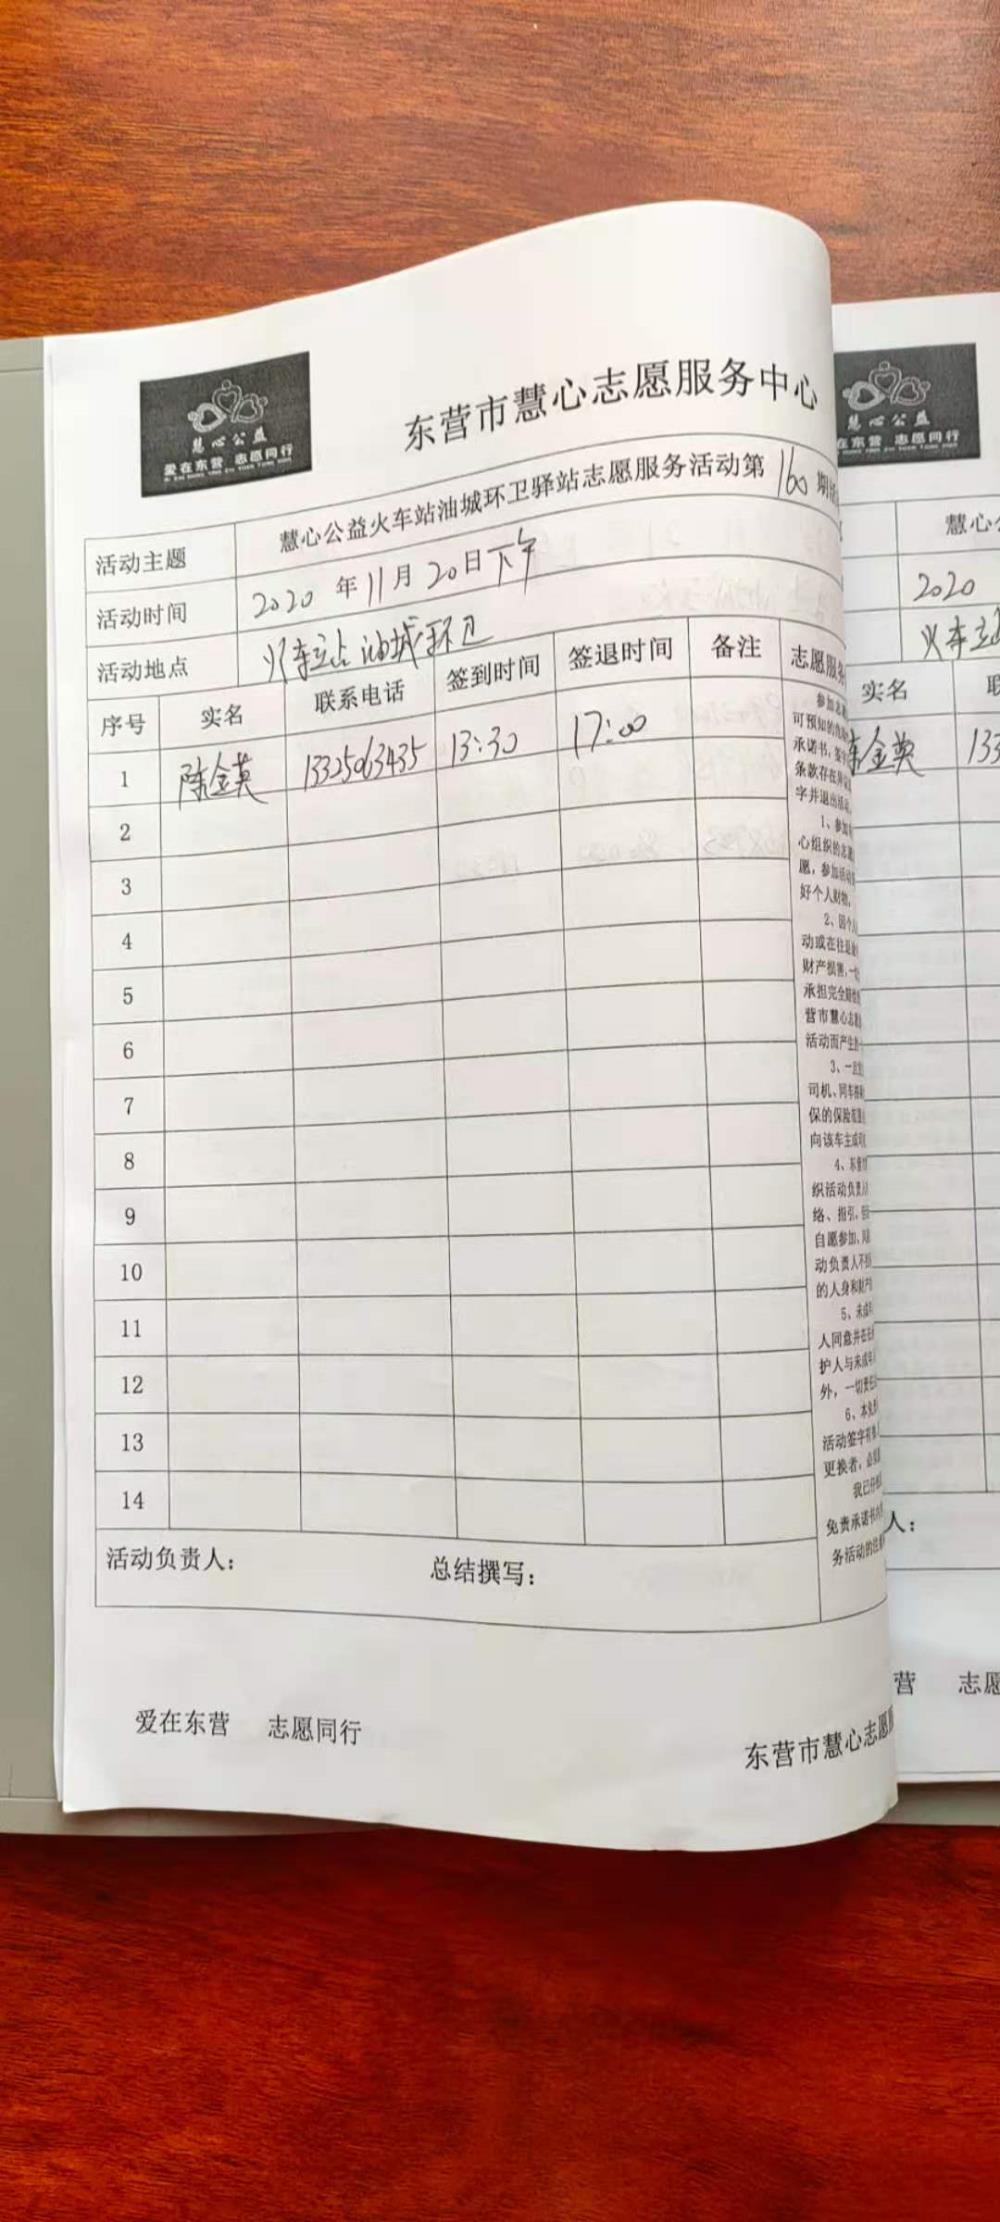 慧心公益
爱在东营 志愿同行
东营市慧心志愿服务中心
活动主题 慧心公益火车站油城环卫驿站志愿服务活动第160期
活动时间 2020年11月20日下午
活动地点 火车站油城环卫
序号 实名 联系电话 签到时间 签退时间 备注 志愿服务
1 陈金英 13325063435 13:30 17:00
2
3
4
5
6
7
8
9
10
11
12
13
14
参加志愿
可预知的危险
承诺书，签字
条款存在异议
字并退出活动。
1、参加
心组织的志愿
愿，参加活动
好个人财物。
2、因个人
动或在往返途
财产损害，一切
承担完全赔偿
营市慧心志愿
活动而产生的
3、一旦发
司机、同车搭乘
保的保险范围
向该车主或司
4、东营市
织活动负责人
络、指引，但
自愿参加、风
动负责人不
的人身和财产
5、未成年
人同意并在
护人与未成年
外，一切责任
6、本免责
活动签字有效
更换者，必须
我已仔细
免责承诺书内
务活动的注意
活动负责人： 总结撰写：
爱在东营 志愿同行
东营市慧心志愿服
慧心公益
在东营 志愿同行
慧心公
2020
火车站
实名 联
陈金英 133
人：
营 志愿